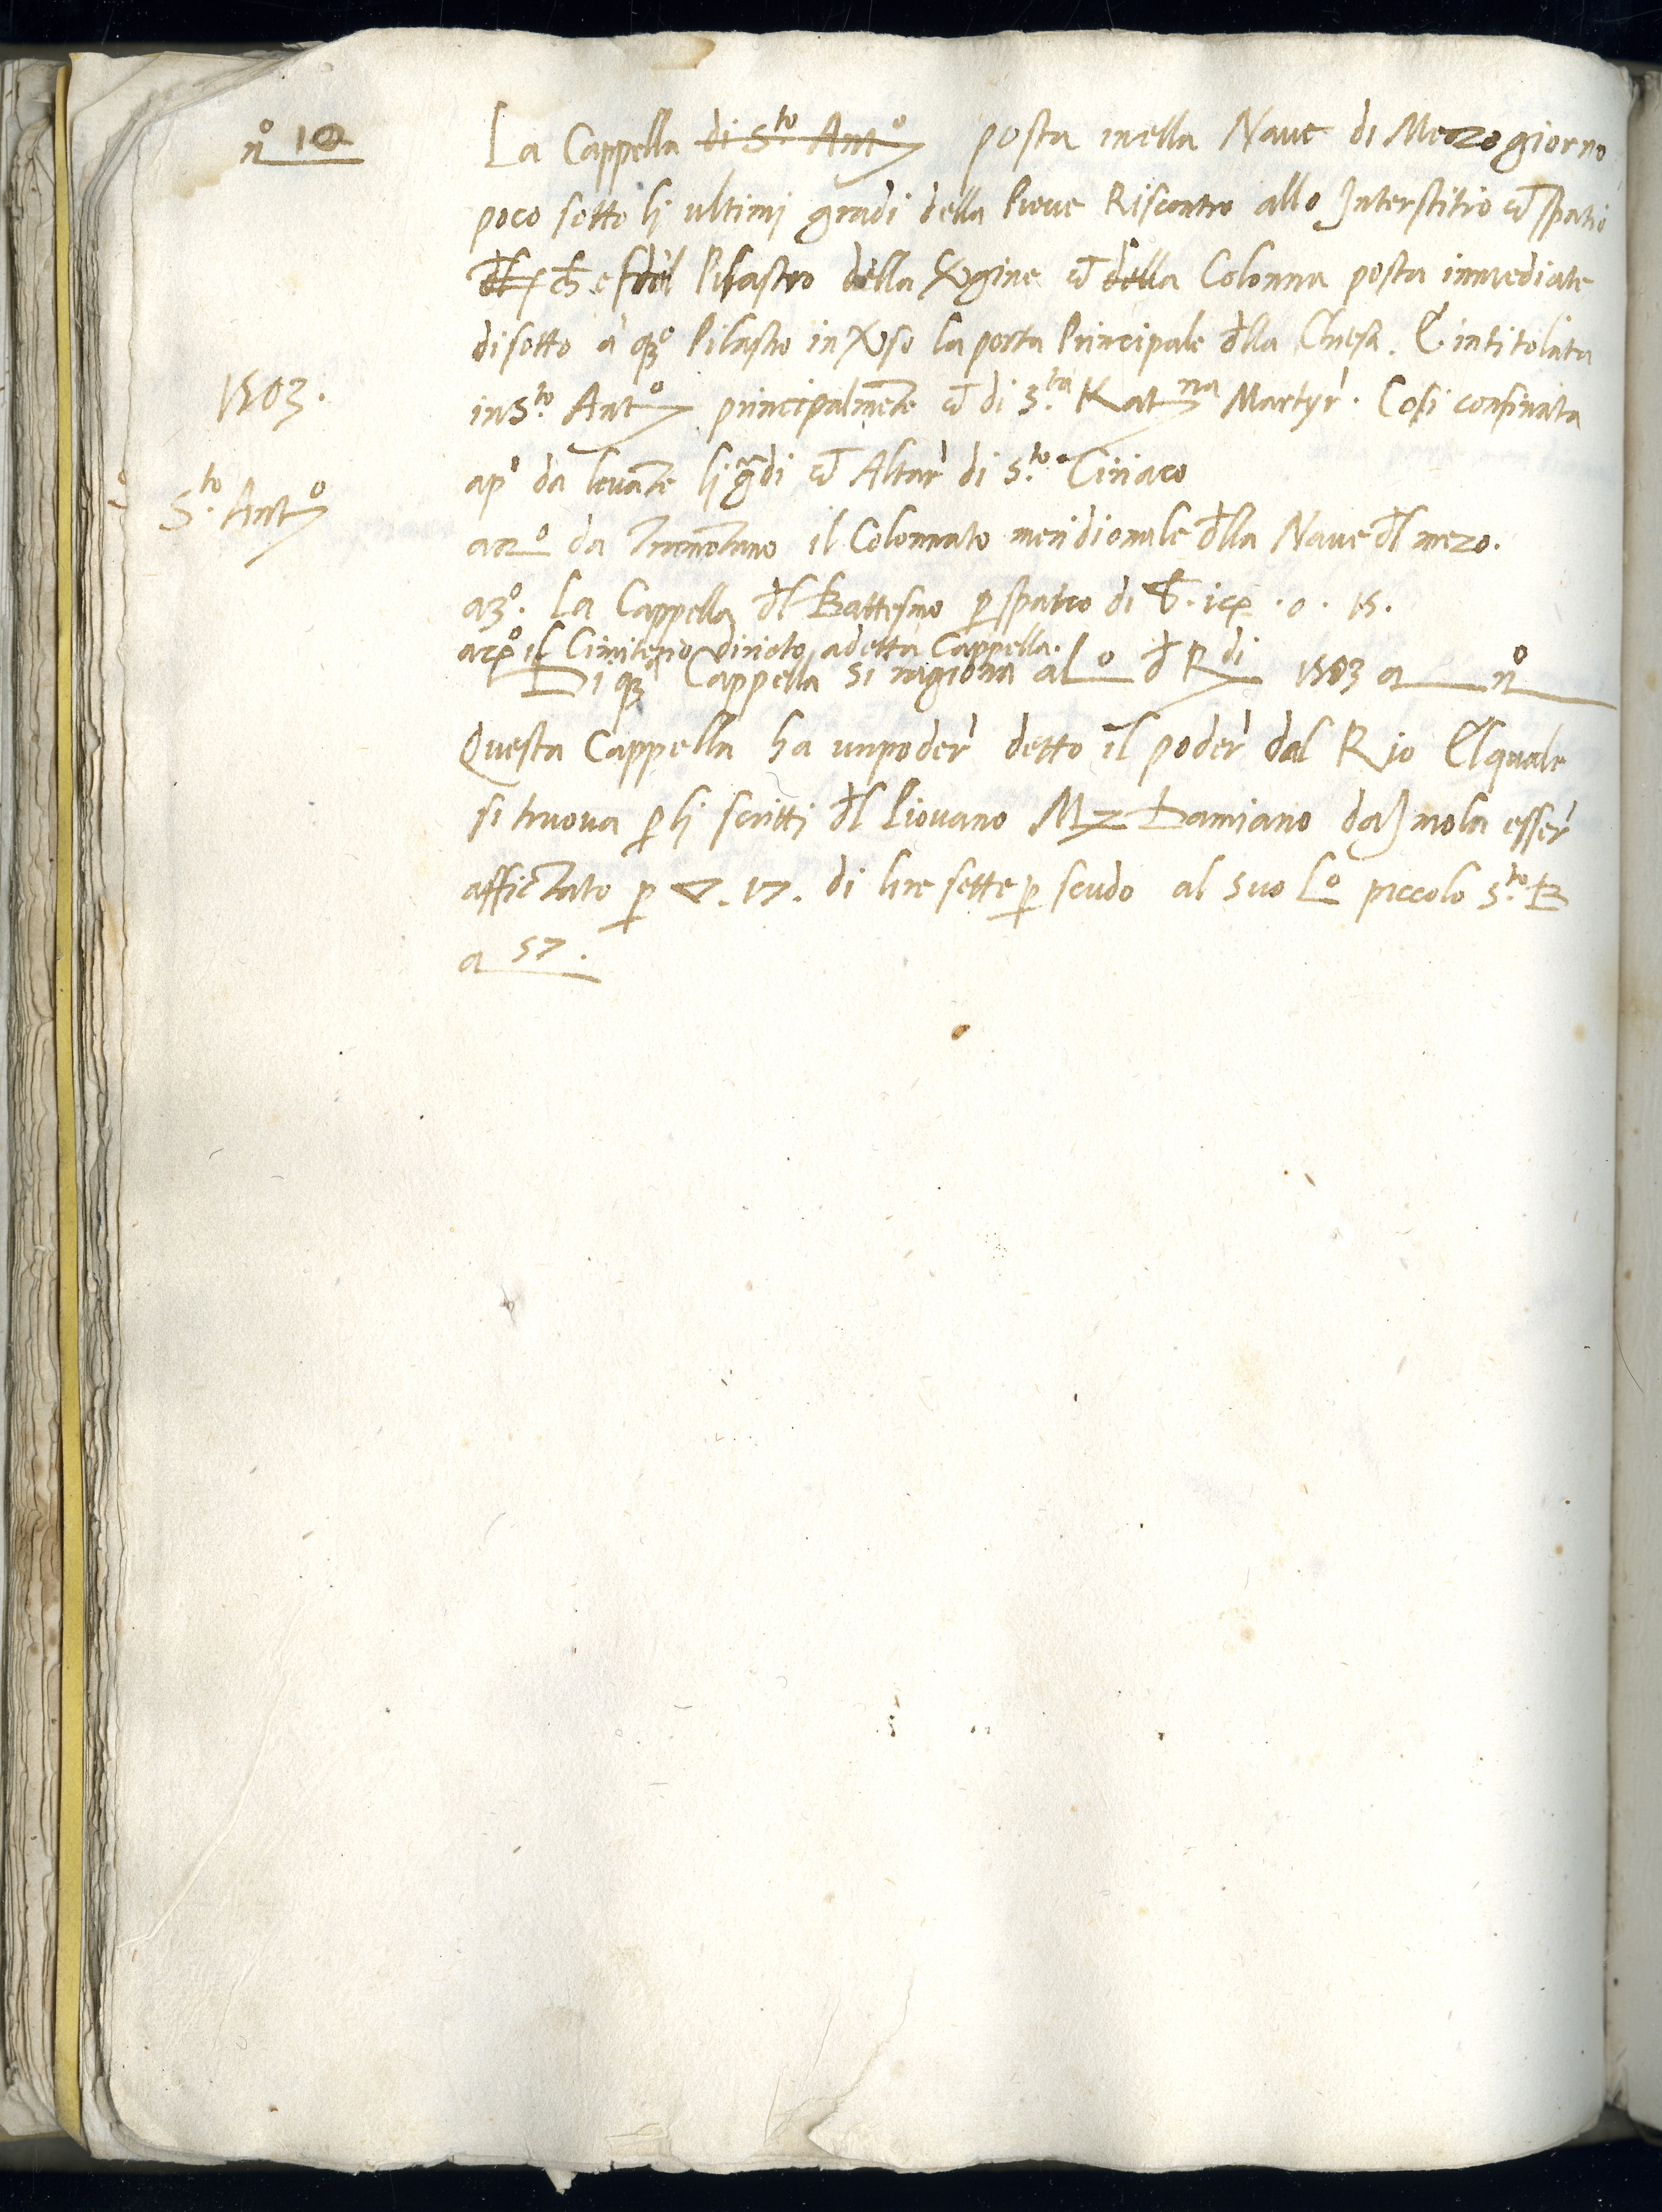 nº 10
La Cappella di Sto Antº posta inella Naue di Mezogiorno
poco sotto lj ultimj gradi della Pieue Riscontro allo Interstitio et spatio
del Pilastro della Vgine et della Colonna posta inmediate
disotto à qº Pilastro in Vso la porta Principale dlla Chiesa. E intitolata
1503.
in Sto Antº principalmente et di Sta Katna Martyr. Cosi confinata
Sto Antº
ap da leuante lj gradi et Altar di Sto Ciriaco
a 2º da Tramontano il Colonnato meridionale dlla Naue dl mezo.
a 3º. La Cappella dl Battesmo p spatio di
a 4º il Cimiterio dirieto adetta Cappella.
Di q Cappella si ragiona al Lº d Rdi 1503 a nº
Questa Cappella ha unpoder detto il poder dal Rio Elquale
si truova p lj scritti dl Piouano Mz Damiano da Imola esser
affictato p ▽. 17. di lire sette p scudo al suo Lº piccolo Sto B
a 57.